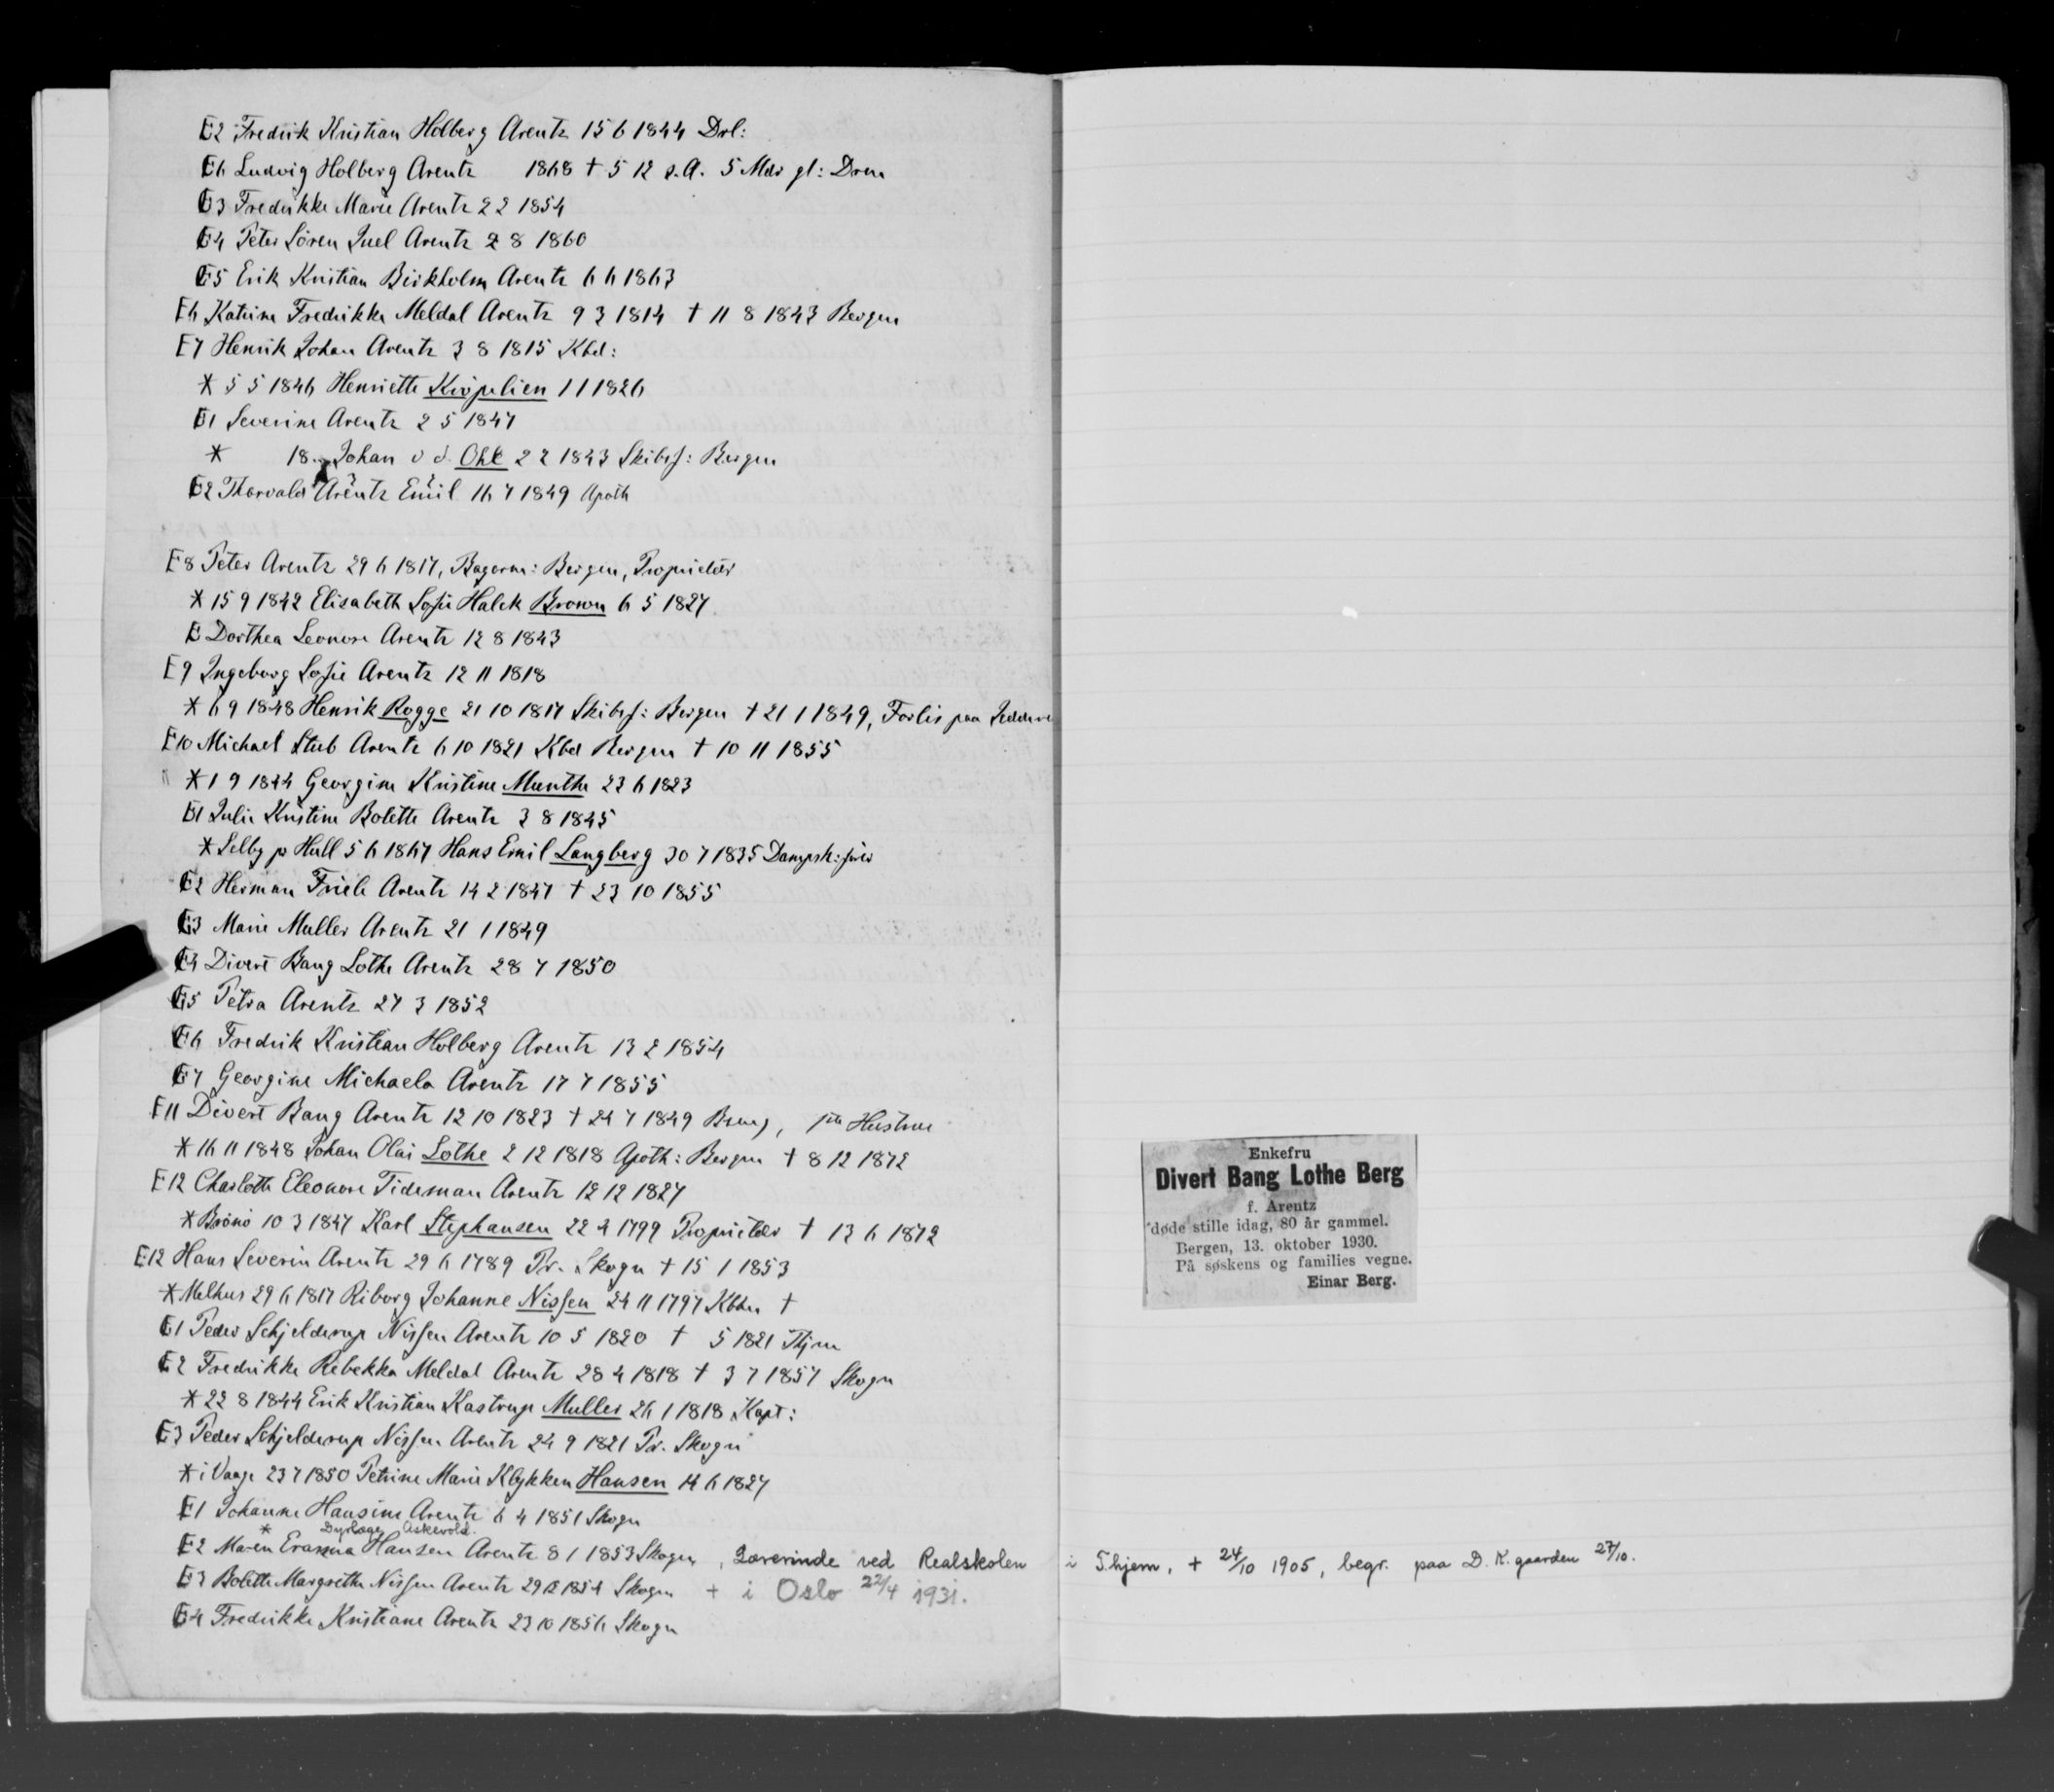 E2 Fredrik Kristian Holberg Arentz 15 6 1844 Drl:
E6 Ludvig Holberg Arentz 1868 † 5 12 s.A. 5 Mdr gl: Drm
E3 Fredrikke Marie Arentz 2 2 1854
E4 Peter Sören Juel Arentz 2 8 1860
E5 Erik Kristian Birkholm Arentz 6 6 1863
E6 Katrine Fredrikke Meldal Arentz 9 3 1814 † 11 8 1843 Bergen
E7 Henrik Johan Arentz 3 8 1815 Kbd:
* 5 5 1846 Henriette 1 1 1826
E1 Severine Arentz 2 5 1847
* 18 Johan v d. Ohe 2 2 1843 Skibsf: Bergen
E2 Thorvald Arentz Emil 16 7 1849 Apoth
E8 Peter Arentz 29 6 1817, Bagerm: Bergen, Proprietær
* 15 9 1842 Elisabeth Sofie Halck Brown 6 5 1827
E Dorthea Leonore Arentz 12 8 1843
E9 Ingeborg Sofie Arentz 12 11 1818
* 6 9 1848 Henrik Rogge 21 10 1817 Skibsf: Bergen † 21 1 1849, Forlis paa
E10 Michael Stub Arentz 6 10 1821 Kbd Bergen † 10 11 1855
* 1 9 1844 Georgine Kristine Munthe 23 6 1823
E1 Julie Kristine Bolette Arentz 3 8 1845
* Selby p Hull 5 6 1867 Hans Emil Langberg 30 7 1835 Dampsk:fører
E2 Herman Friele Arentz 14 2 1847 † 23 10 1855
E3 Marie Muller Arentz 21 1 1849
E4 Divert Bang Lothe Arentz 28 7 1850
E5 Petra Arentz 27 3 1852
E6 Fredrik Kristian Holberg Arentz 13 2 1854
E7 Georgine Michaela Arentz 17 7 1855
E11 Divert Bang Arentz 12 10 1823 † 24 7 1849 Berg, 1ste Hustru
* 16 11 1848 Johan Olai Lothe 2 12 1818 Apoth: Bergen † 8 12 1872
E12 Charlotte Eleonore Tideman Arentz 12 12 1827
* Brönö 10 3 1847 Karl Stephansen 22 4 1799 Proprietær † 13 6 1872
E12 Hans Severin Arentz 29 6 1789 Pr. Skogn † 15 1 1853
* Melhus 29 6 1817 Riborg Johanne Nissen 24 11 1797 Kbhn †
E1 Peder Schjelderup Nissen Arentz 10 5 1820 † 5 1821 Thjm
E2 Fredrikke Rebekka Meldal Arentz 28 4 1818 † 3 7 1857 Skogn
* 22 8 1844 Erik Kristian Kastrup Muller 26 1 1818 Kapt:
E3 Peder Schjelderup Nissen Arentz 24 9 1821 Pr. Skogn
* i Vaage 23 7 1850 Petrine Marie Klykken Hansen 14 6 1827
E1 Johanne Hansine Arentz 6 4 1851 Skogn
* Dyrlæge Askevold.
E2 Maren Erasma Hansen Arentz 8 1 1853 Skogn, Lærerinde ved Realskolen i T.hjem, + 24/10 1905, begr. paa D.K. gaarden 27/10.
E3 Bolette Margrethe Nissen Arentz 29 12 1854 Skogn + i Oslo 22/4 1931.
E4 Fredrikke Kristiane Arentz 23 10 1856 Skogn
Enkefru
Divert Bang Lothe Berg
f. Arentz
døde stille idag, 80 år gammel.
Bergen, 13. oktober 1930.
På søskens og families vegne.
Einar Berg.